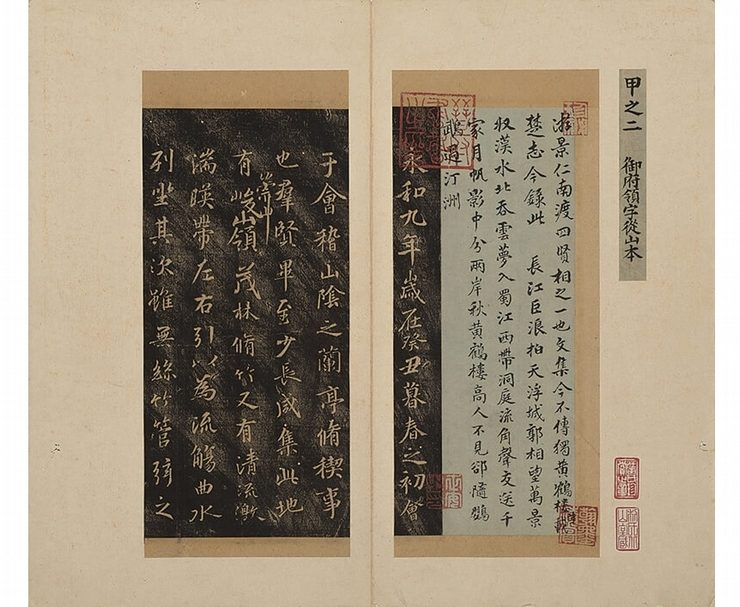 甲之二 御府領字從山本
游景仁南渡四賢相之一也文集今不傳獨黃鶴樓
楚志今錄此 長江巨浪拍天浮城郭相望萬景
收漢水北吞雲夢入蜀江西帶洞庭流角聲交送千
家月帆影中分兩岸秋黃鶴樓高人不見卻隨鸚
鵡過汀洲
永和九年歲在癸丑暮春之初會
于會稽山陰之蘭亭脩稧事
也羣賢畢至少長咸集此地
有崇山峻嶺茂林脩竹又有清流激
湍暎帶左右引以為流觴曲水
列坐其次雖無絲竹管弦之